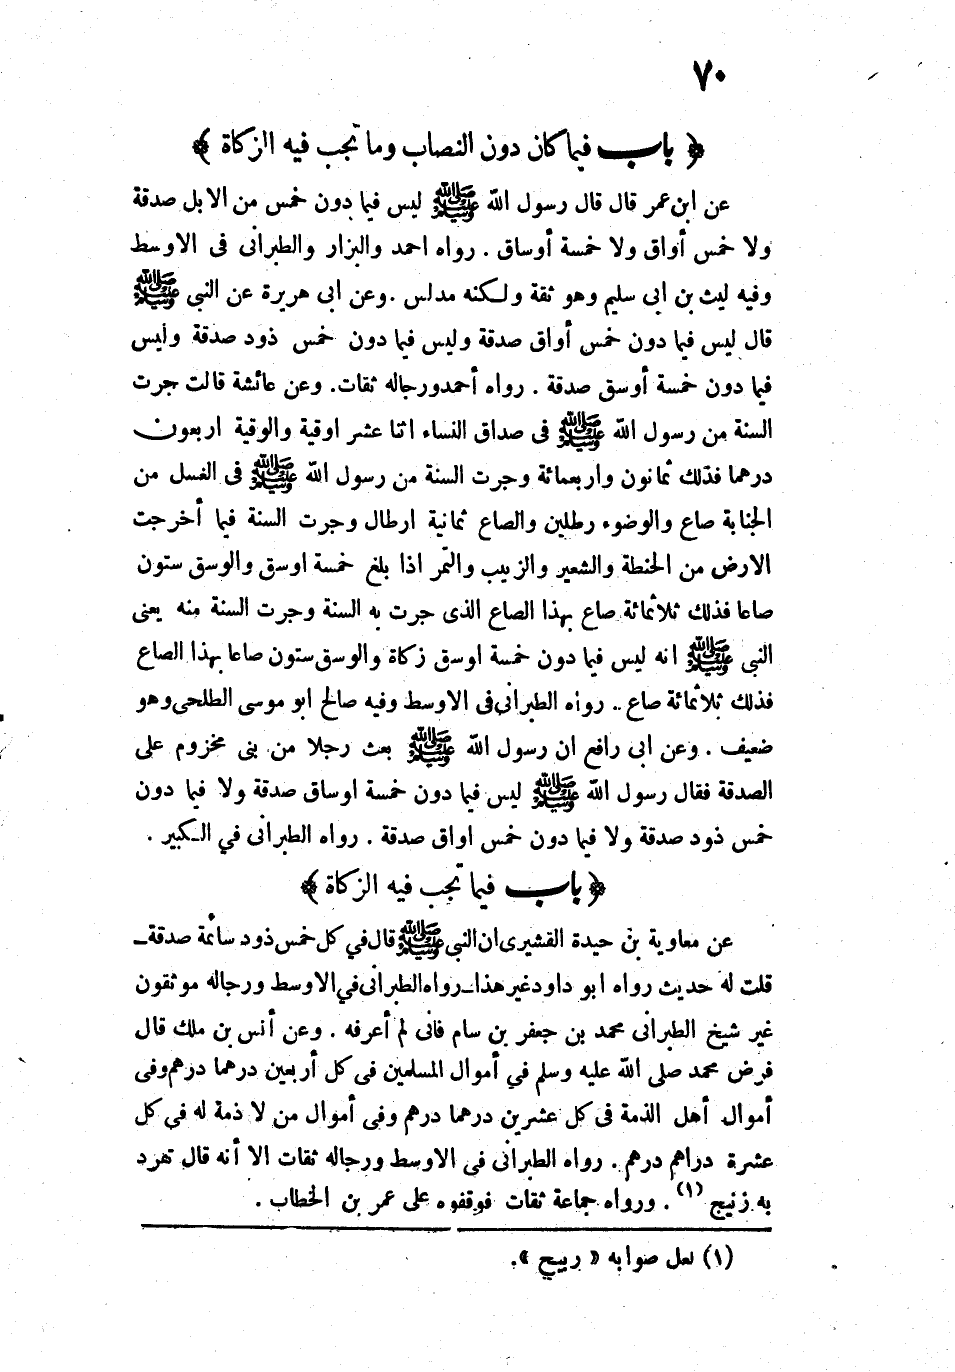 ٧٠
﴿ باب فيما كان دون النصاب وما تجب فيه الزكاة ﴾
عن ابن عمر قال قال رسول الله ﷺ ليس فيما دون خمس من الابل صدقة
ولا خمس أواق ولا خمسة أوساق . رواه احمد والبزار والطبرانى فى الاوسط
وفيه ليث بن ابى سليم وهو ثقة ولكنه مدلس . وعن ابى هريرة عن النبى ﷺ
قال ليس فيما دون خمس أواق صدقة وليس فيما دون خمس ذود صدقة وليس
فيما دون خمسة أوسق صدقة . رواه أحمد ورجاله ثقات. وعن عائشة قالت جرت
السنة من رسول الله ﷺ فى صداق النساء اثنا عشر اوقية والوقية اربعون
درهما فذلك ثمانون واربعمائة وجرت السنة من رسول الله ﷺ فى الغسل من
الجنابة صاع والوضوء رطلين والصاع ثمانية ارطال وجرت السنة فيما أخرجت
الارض من الحنطة والشعير والزبيب والتمر اذا بلغ خمسة اوسق والوسق ستون
صاعا فذلك ثلاثمائة صاع بهذا الصاع الذى جرت به السنة وجرت السنة منه يعنى
النبى ﷺ انه ليس فيما دون خمسة اوسق زكاة والوسق ستون صاعا بهذا الصاع
فذلك ثلاثمائة صاع .. رواه الطبرانى فى الاوسط وفيه صالح ابو موسى الطلحى وهو
ضعيف . وعن ابى رافع ان رسول الله ﷺ بعث رجلا من بنى مخزوم على
الصدقة فقال رسول الله ﷺ ليس فيما دون خمسة اوساق صدقة ولا فيما دون
خمس ذود صدقة ولا فيما دون خمس اواق صدقة . رواه الطبرانى في الكبير .
﴿ باب فيما تجب فيه الزكاة ﴾
عن معاوية بن حيدة القشيرى ان النبى ﷺ قال في كل خمس ذود سائمة صدقة ـ
قلت له حديث رواه ابو داود غير هذا ـ رواه الطبرانى في الاوسط ورجاله موثقون
غير شيخ الطبرانى محمد بن جعفر بن سام فانى لم أعرفه . وعن أنس بن ملك قال
فرض محمد صلى الله عليه وسلم في أموال المسلمين فى كل أربعين درهما درهم وفى
أموال أهل الذمة فى كل عشرين درهما درهم وفى أموال من لا ذمة له في كل
عشرة دراهم درهم . رواه الطبرانى فى الاوسط ورجاله ثقات الا أنه قال تفرد
به زنيج (١) . ورواه جماعة ثقات فوقفوه على عمر بن الخطاب .
(١) لعل صوابه « ربيح ».